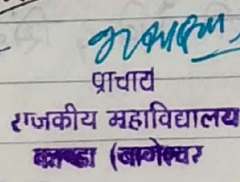 प्राचार्य
राजकीय महाविद्यालय
काण्डा (बागेश्वर